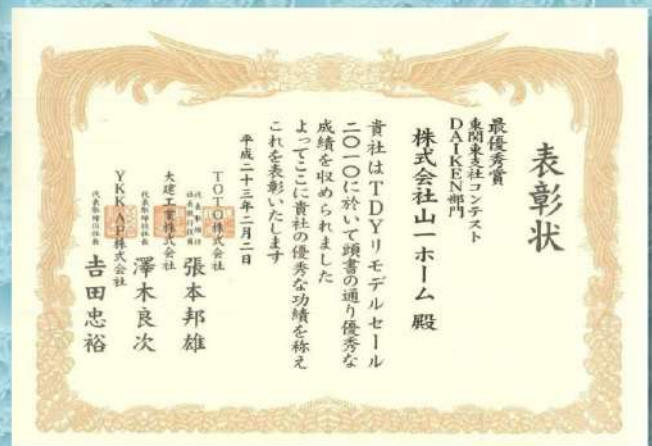 表彰状
最優秀賞
東関東支社コンテスト
DAIKEN部門
株式会社山一ホーム 殿
貴社はTDYリモデルセール
二〇一〇に於いて頭書の通り優秀な
成績を収められました
よってここに貴社の優秀な功績を称え
これを表彰いたします
平成二十三年二月二日
TOTO株式会社
代表取締役
社長執行役員
張本邦雄
大建工業株式会社
代表取締役社長
澤木良次
YKK AP株式会社
代表取締役社長
吉田忠裕